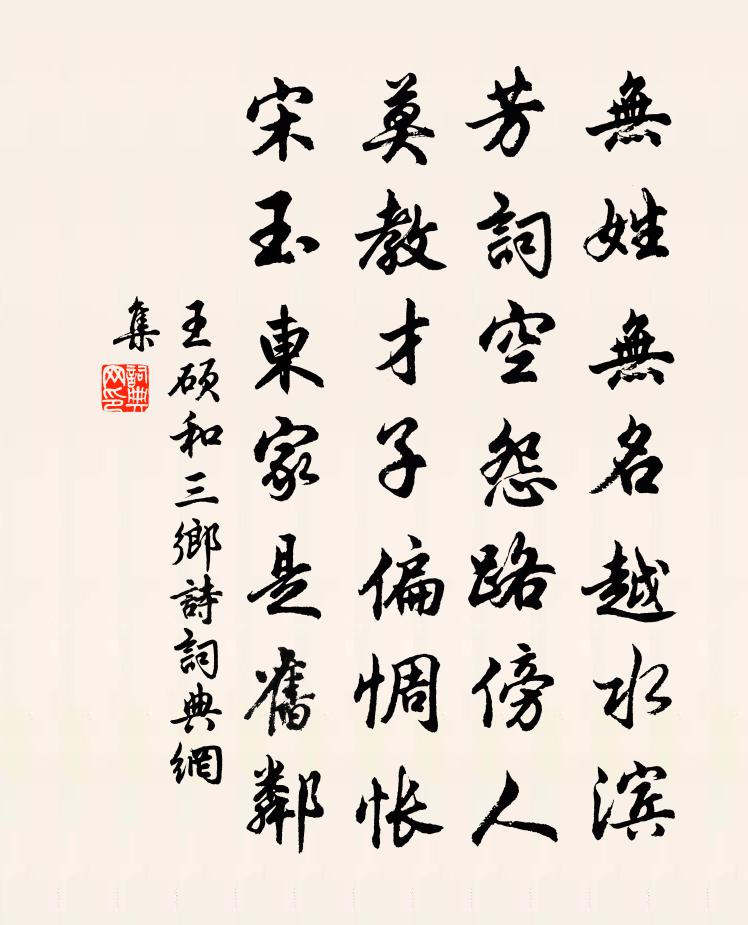 無姓無名越水滨
芳詞空怨路傍人
莫教才子偏惆怅
宋玉東家是舊鄰
王硕和三鄉詩詞典網
集
詞典網印